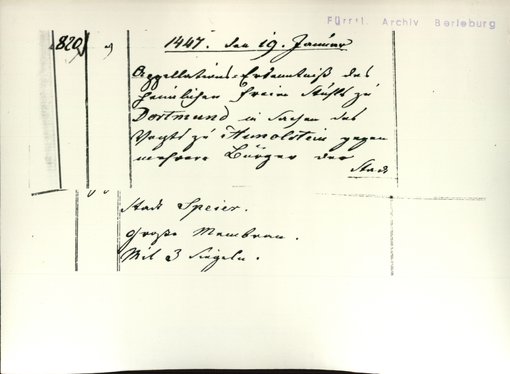 Fürstl. Archiv Berleburg
820)
a)
1447. den 19. Januar
Appellations-Erkenntniß des
heimlichen Freien Stuhls zu
Dortmund in Sachen des
Vogts zu Hunolstein gegen
mehrere Bürger der
Stadt
Stadt Speier.
Große Membran.
Mit 3 Siegeln.